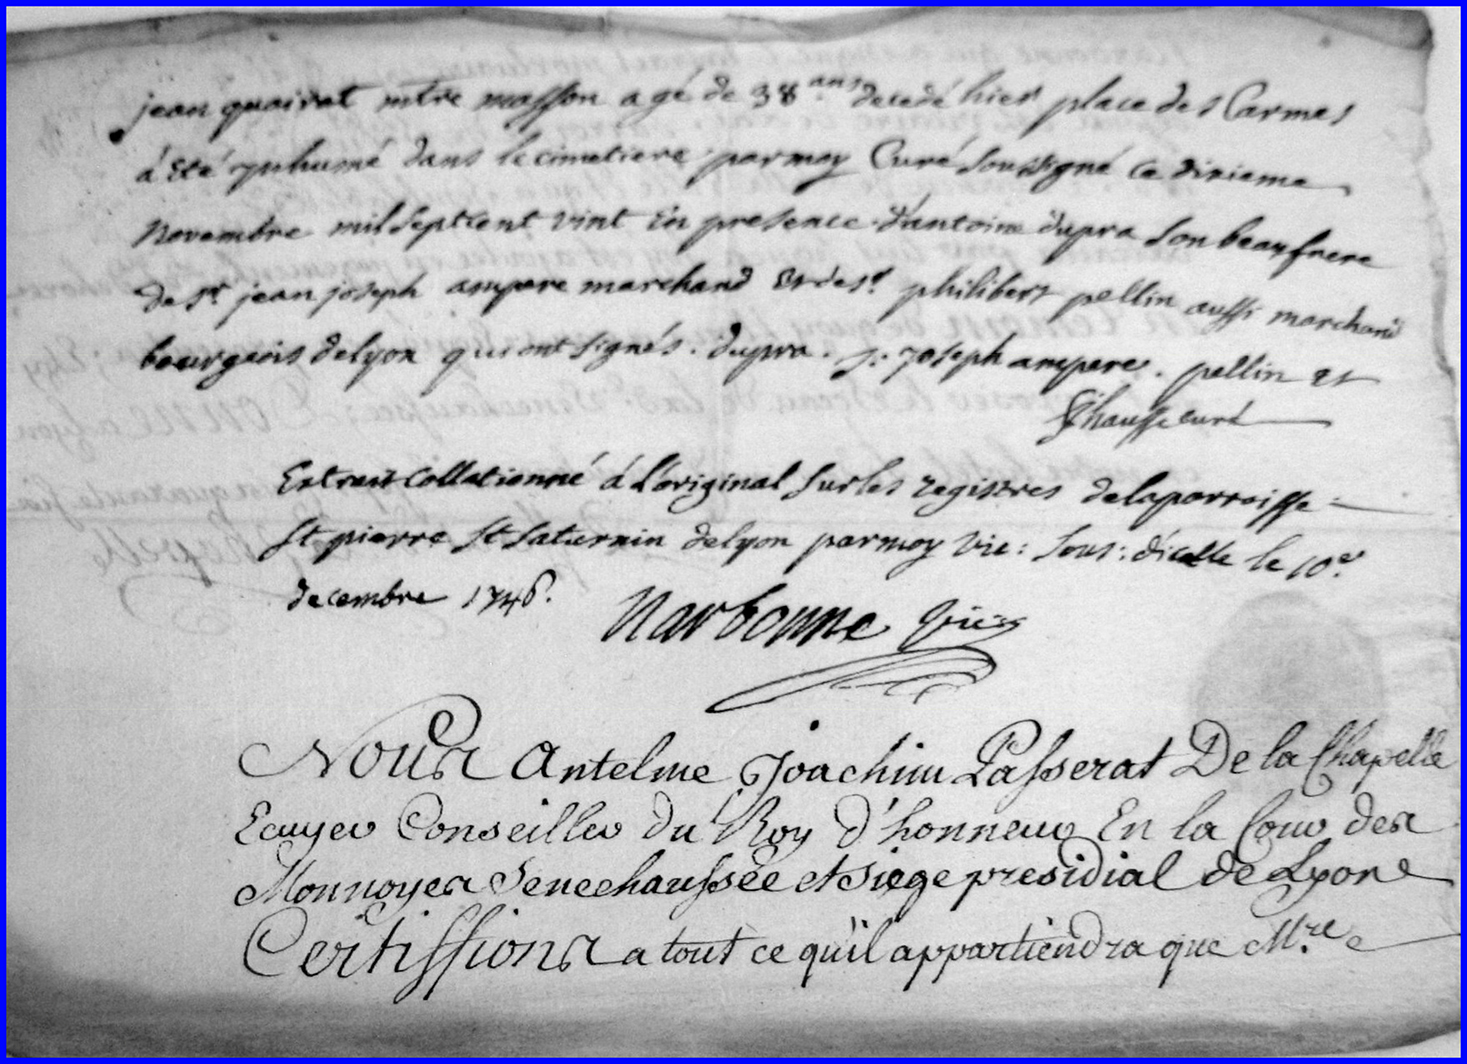 jean quairat mtre masson agé de 38 ans decedé hier place des Carmes
à été ynhumé dans le cimetiere par moy Curé soussigné ce dixieme
Novembre mil sept cent vint En presence d'antoine dupra son beaufrere
de sr jean joseph ampere marchand Et de sr philibert pellin aussi marchand
bourgeois de lyon qui ont signés. dupra. j: joseph ampere. pellin et
Chausse curé
Extrait Collationné à l'original sur les registres de la parroisse
St pierre St saturnin de lyon par moy vic: sous: d'icelle le 10e.
decembre 1746.
Narbonne vic:
Nous Antelme Joachim Passerat De la Chapelle
Ecuyer Conseiller du Roy d'honneur En la Cour des
Monnoyes Senechaussée et Siege presidial de Lyon
Certiffions a tout ce qu'il appartiendra que Mre